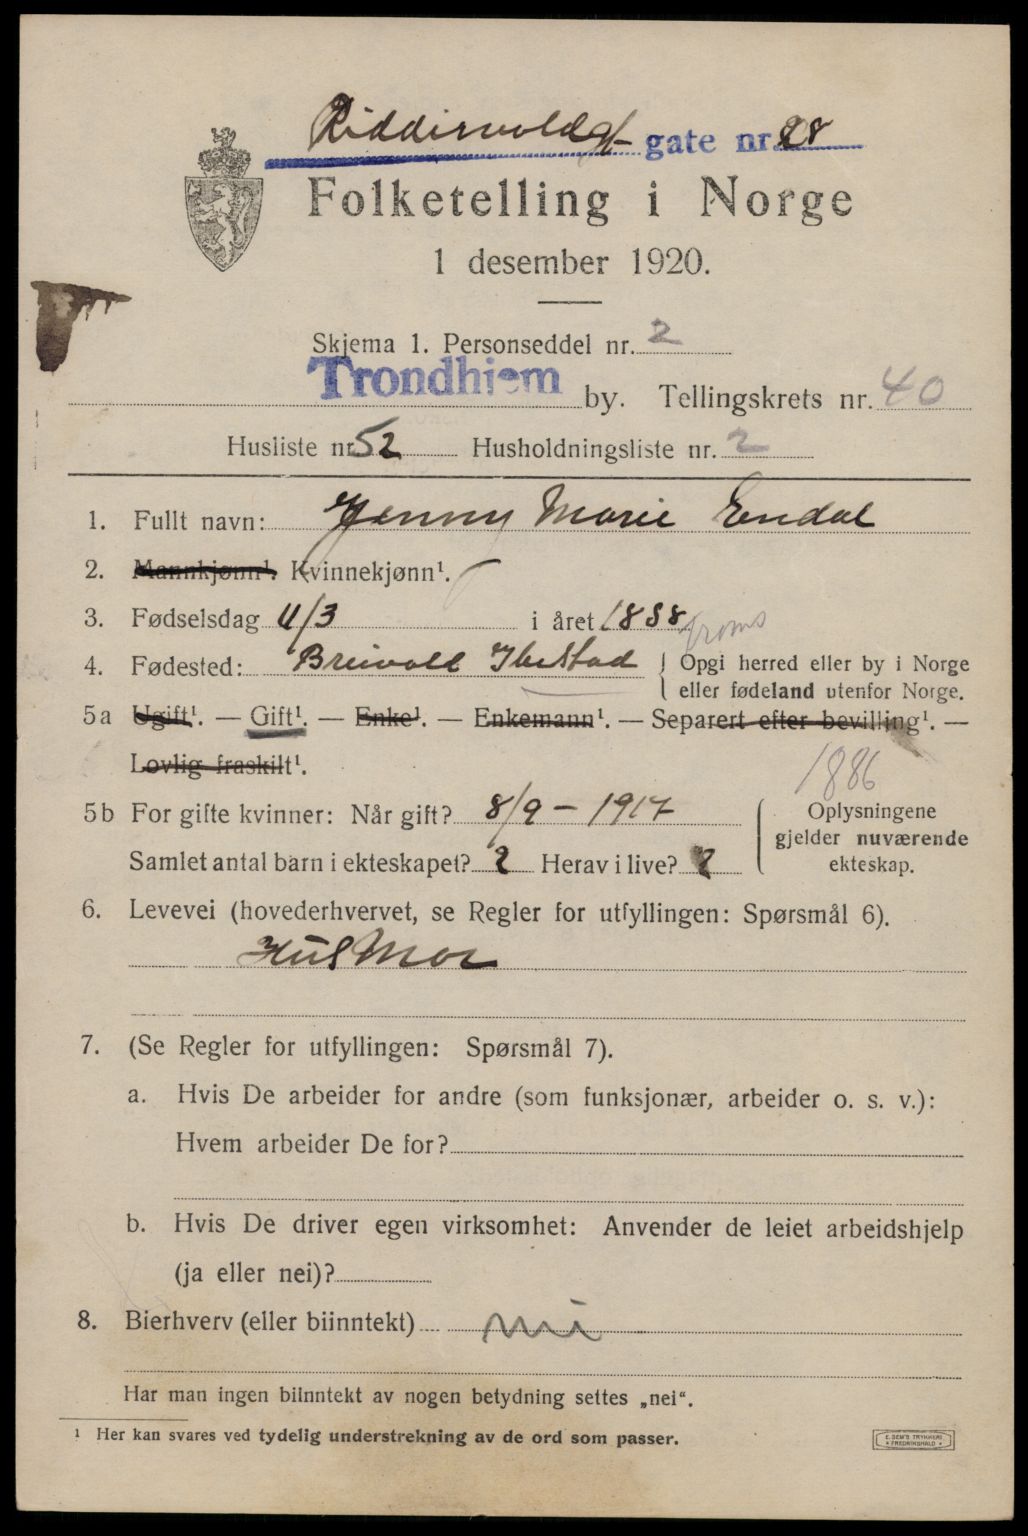 Riddervoldsgt gate nr. 28
Folketelling i Norge
1 desember 1920.
Skjema 1. Personseddel nr. 2
Trondhjem by. Tellingskrets nr. 40
Husliste nr. 52 Husholdningsliste nr. 2
1. Fullt navn: Jenny Marie Eendal
2. Mannkjønn¹. Kvinnekjønn¹.
3. Fødselsdag 4/3 i året 1888
troms
4. Fødested: Breivold Ibestad Opgi herred eller by i Norge
eller fødeland utenfor Norge.
5a Ugift¹. — Gift¹. — Enke¹. — Enkemann¹. — Separert efter bevilling¹. —
Lovlig fraskilt¹.
1886
5b For gifte kvinner: Når gift? 8/9 - 1917 Oplysningene
gjelder nuværende
Samlet antal barn i ekteskapet? 2 Herav i live? 2 ekteskap.
6. Levevei (hovederhvervet, se Regler for utfyllingen: Spørsmål 6).
Husmor
7. (Se Regler for utfyllingen: Spørsmål 7).
a. Hvis De arbeider for andre (som funksjonær, arbeider o. s. v.):
Hvem arbeider De for?
b. Hvis De driver egen virksomhet: Anvender de leiet arbeidshjelp
(ja eller nei)?
8. Bierhverv (eller biinntekt) nei
Har man ingen biinntekt av nogen betydning settes „nei“.
¹ Her kan svares ved tydelig understrekning av de ord som passer.
E. SEM'S TRYKKERI
FREDRIKSHALD